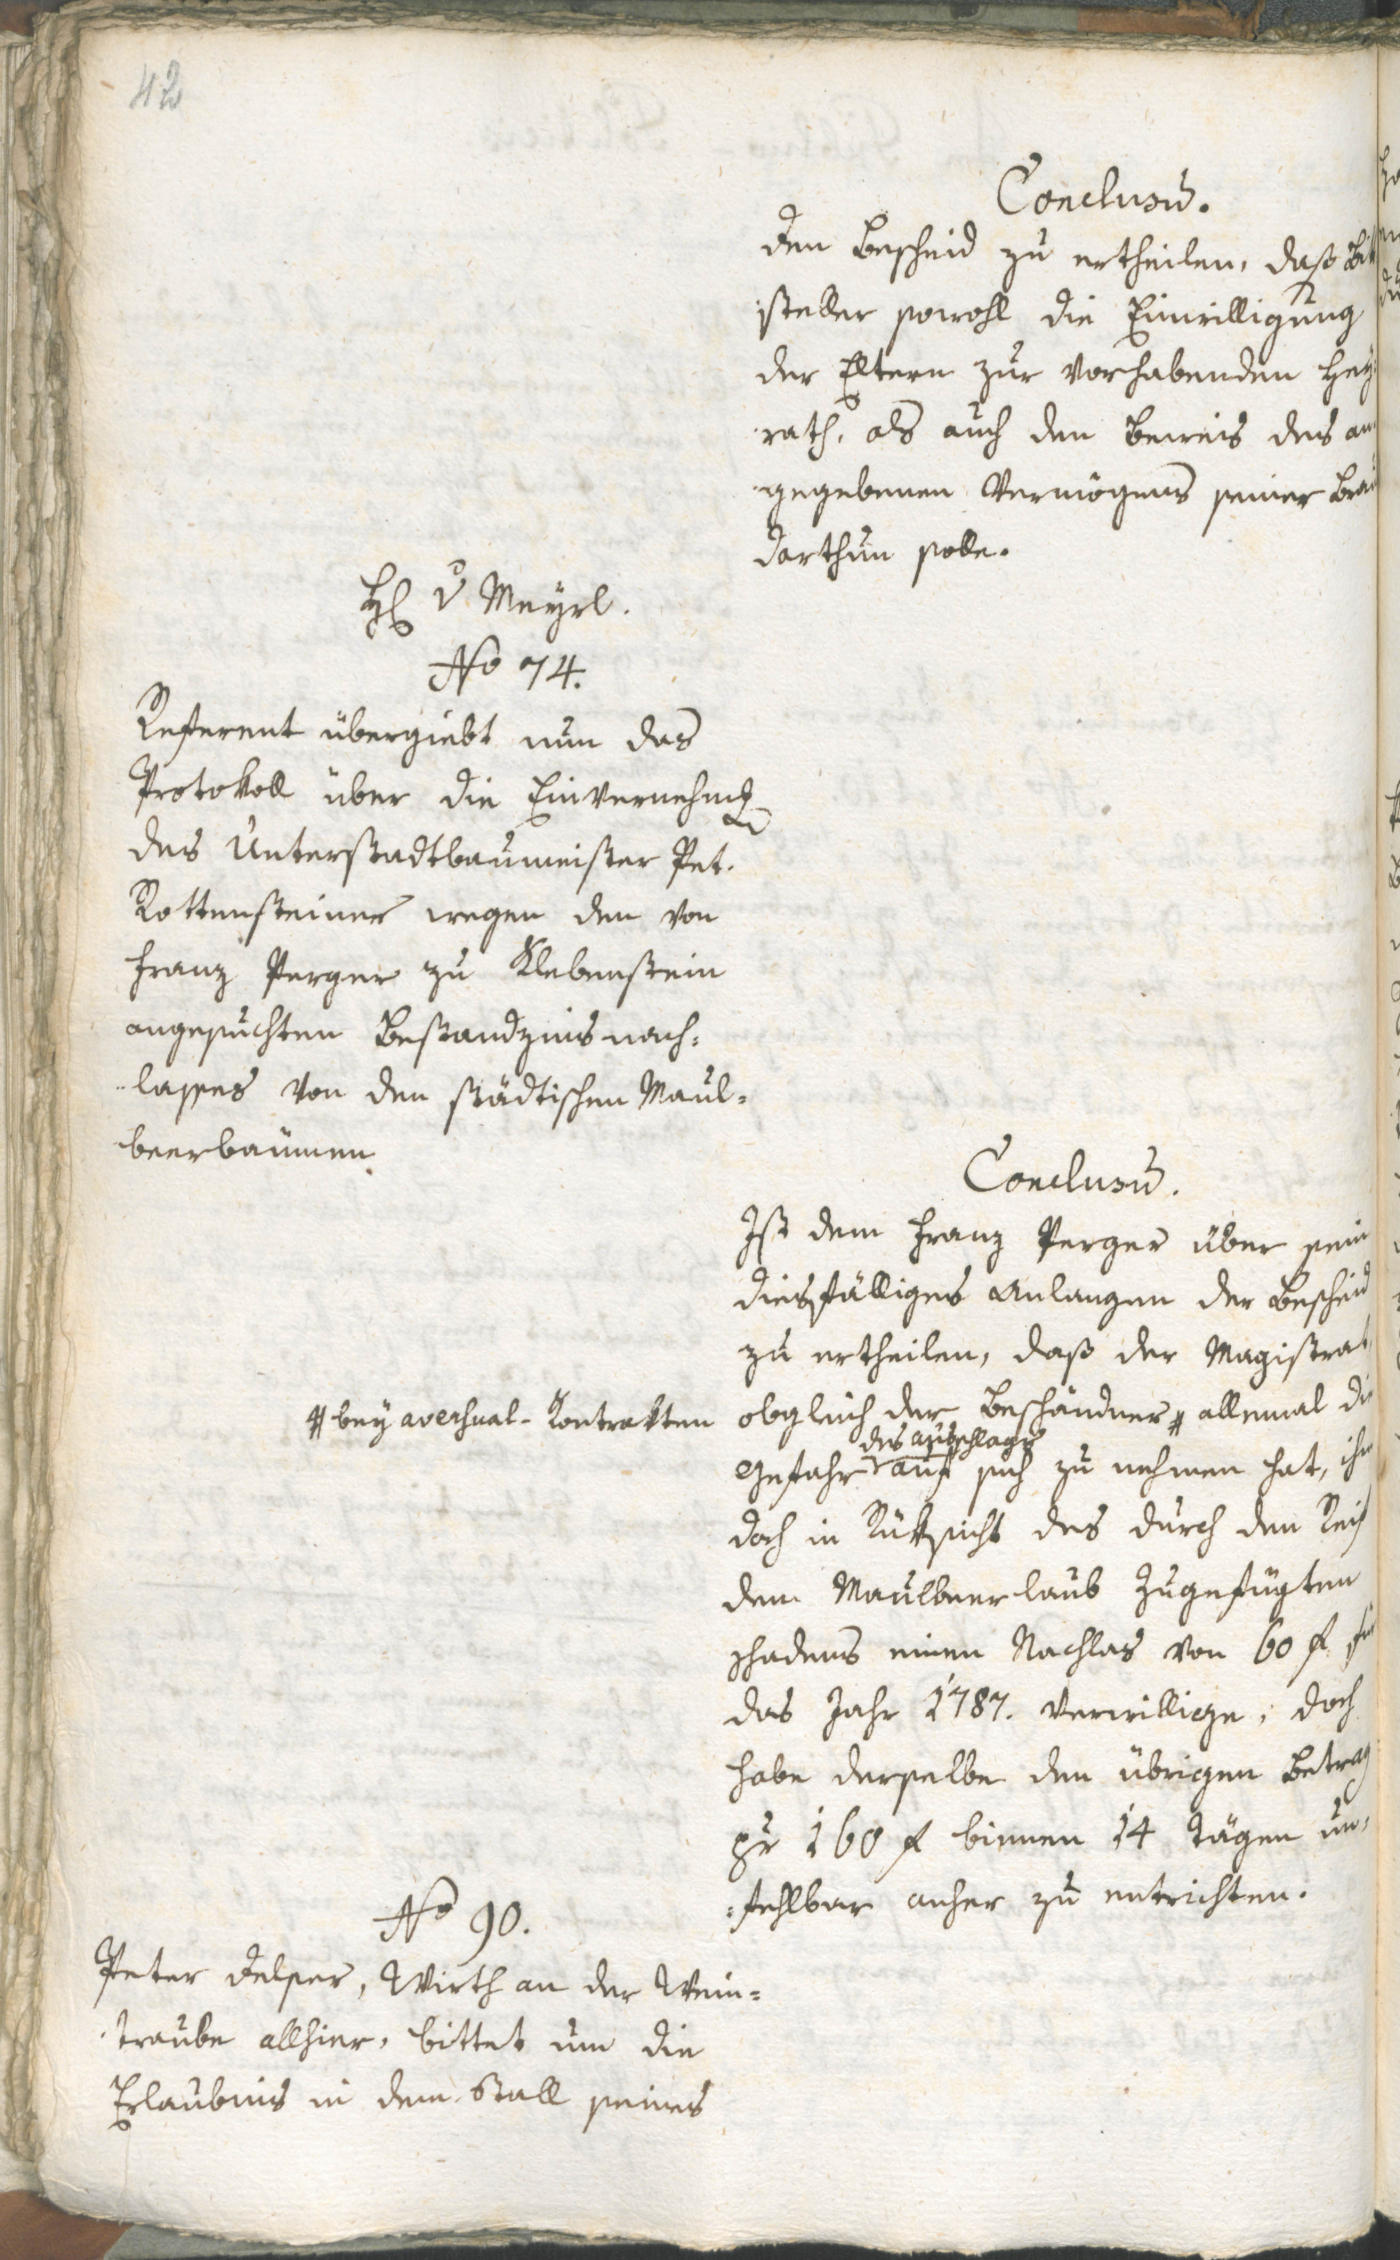 42
Conclusū.
den Bescheid zu ertheilen, daß Bitt
steller sowohl die Einwilligung
der Eltern zur vorhabenden Hey¬
rath, als auch den Beweis des an¬
gegebenen Vermögens seiner Brau
darthun solle.
H v Meyrl.
No 74.
Referent übergiebt nun das
Protokoll über die Einvernehmg
des Unterstadtbaumeister Pet.
Rottensteiner wegen den von
Franz Perger zu Klebenstein
angesuchten Bestandzins nach¬
lasses von den städtischen Maul¬
beerbäumen.
Conclusū.
Ist dem Franz Perger über sein
diesfälliges Anlangen der Bescheid
zu ertheilen, daß der Magistrat,
obgleich der Beständner # allemal die
# bey aversual-Kontrakten
des Ausschlags
Gefahr auf sich zu nehmen hat, ihm
doch in Rüksicht des durch den Reif
dem Maulbeerlaub zugefügten
Schadens einen Nachlas von 60 f für
das Jahr 1787. verwillige; doch
habe derselbe den übrigen Betrag
pr 160 f binnen 14 Tägen un¬
fehlbar anher zu entrichten.
No 90.
Peter Delser, Wirth an der Wein¬
traube allhier, bittet um die
Erlaubnis in dem Stall seines